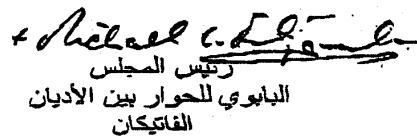 + Michael L. Fitzgerald
رئيس المجلس
البابوي للحوار بين الأديان
الفاتيكان